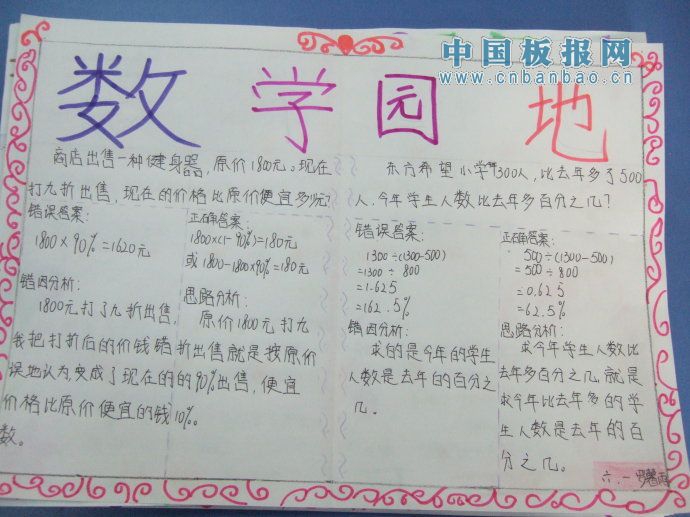 中国板报网
www.cnbanbao.cn
数学园地
商店出售一种健身器，原价1800元。现在
打九折出售，现在的价格比原价便宜多少元？
错误答案：
1800×90%=1620元
错因分析：
1800元打了九折出售，
我把打折后的价钱错
误地认为，变成了现在的
价格比原价便宜的钱
数。
正确答案：
1800×(1-90%)=180元
或1800-1800×90%=180元
思路分析：
原价1800元打九
折出售就是按原价
的90%出售，便宜
10%。
东方希望小学1300人，比去年多了500
人，今年学生人数比去年多百分之几？
错误答案：
1300÷(1300-500)
=1300÷800
=1.625
=162.5%
错因分析：
求的是今年的学生
人数是去年的百分之
几。
正确答案：
500÷(1300-500)
=500÷800
=0.625
=62.5%
思路分析：
求今年学生人数比
去年多百分之几，就是
求今年比去年多的学
生人数是去年的百
分之几。
六.一